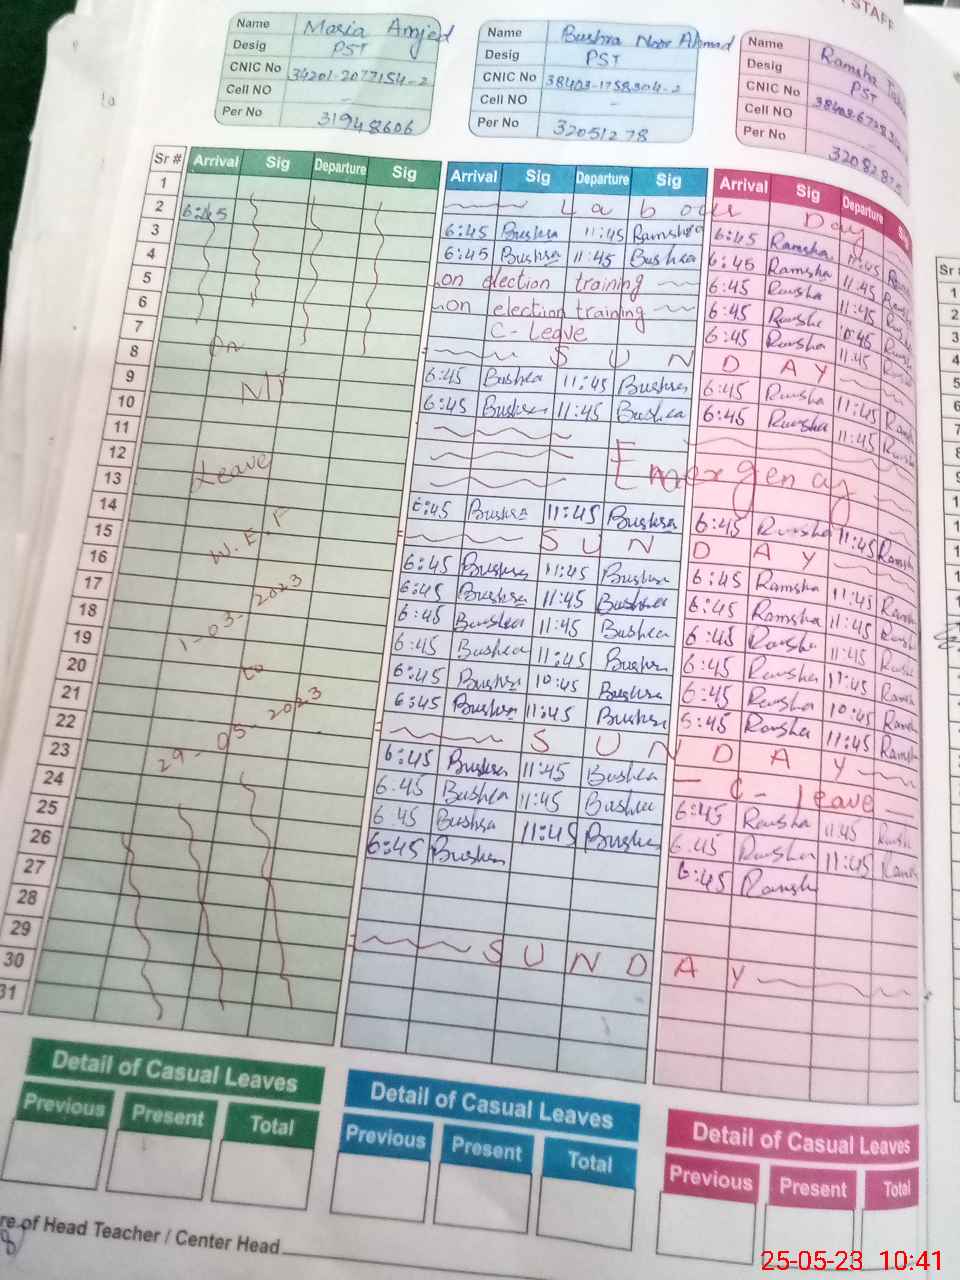 STAFF
Name Maria Amjed
Desig PST
CNIC No 34201-2077154-2
Cell NO -
Per No 31948606
Name Bushra Noor Ahmad
Desig PST
CNIC No 38403-1758304-2
Cell NO -
Per No 32051278
Name Ramsha
Desig PST
CNIC No
Cell NO
Per No
Sr # Arrival Sig Departure Sig Arrival Sig Departure Sig Arrival Sig Departure
1 Labour Day
2 6:45 6:45 Bushra 11:45 Ramsha 6:45 Ramsha 11:45
3 6:45 Bushra 11:45 Bushra 6:45 Ramsha 11:45
4 on election training 6:45 Ramsha 11:45
5 on election training 6:45 Ramsha 10:45
6 C-Leave 6:45 Ramsha 11:45
7 SUNDAY
8 On 6:45 Bushra 11:45 Bushra 6:45 Ramsha 11:45
9 6:45 Bushra 11:45 Bushra 6:45 Ramsha 11:45
10
11 Emergency
12 Leave
13 6:45 Bushra 11:45 Bushra 6:45 Ramsha 11:45 Ramsha
14 SUNDAY
15 W.E.F 6:45 Bushra 11:45 Bushra 6:45 Ramsha 11:45
16 6:45 Bushra 11:45 Bushra 6:45 Ramsha 11:45
17 6:45 Bushra 11:45 Bushra 6:45 Ramsha 11:45
18 1-03-2023 6:45 Bushra 11:45 Bushra 6:45 Ramsha 11:45
19 to 6:45 Bushra 10:45 Bushra 6:45 Ramsha 10:45
20 6:45 Bushra 11:45 Bushra 6:45 Ramsha 11:45
21 SUNDAY
22 29-05-2023 6:45 Bushra 11:45 Bushra C-leave
23 6:45 Bushra 11:45 Bushra 6:45 Ramsha 11:45
24 6:45 Bushra 11:45 Bushra 6:45 Ramsha 11:45
25 6:45 Bushra 6:45 Ramsha
26
27
28 SUNDAY
29
30
31
Detail of Casual Leaves
Previous Present Total
Detail of Casual Leaves
Previous Present Total
Detail of Casual Leaves
Previous Present Total
re of Head Teacher / Center Head
Sr
1
2
3
4
5
6
7
8
9
25-05-23 10:41